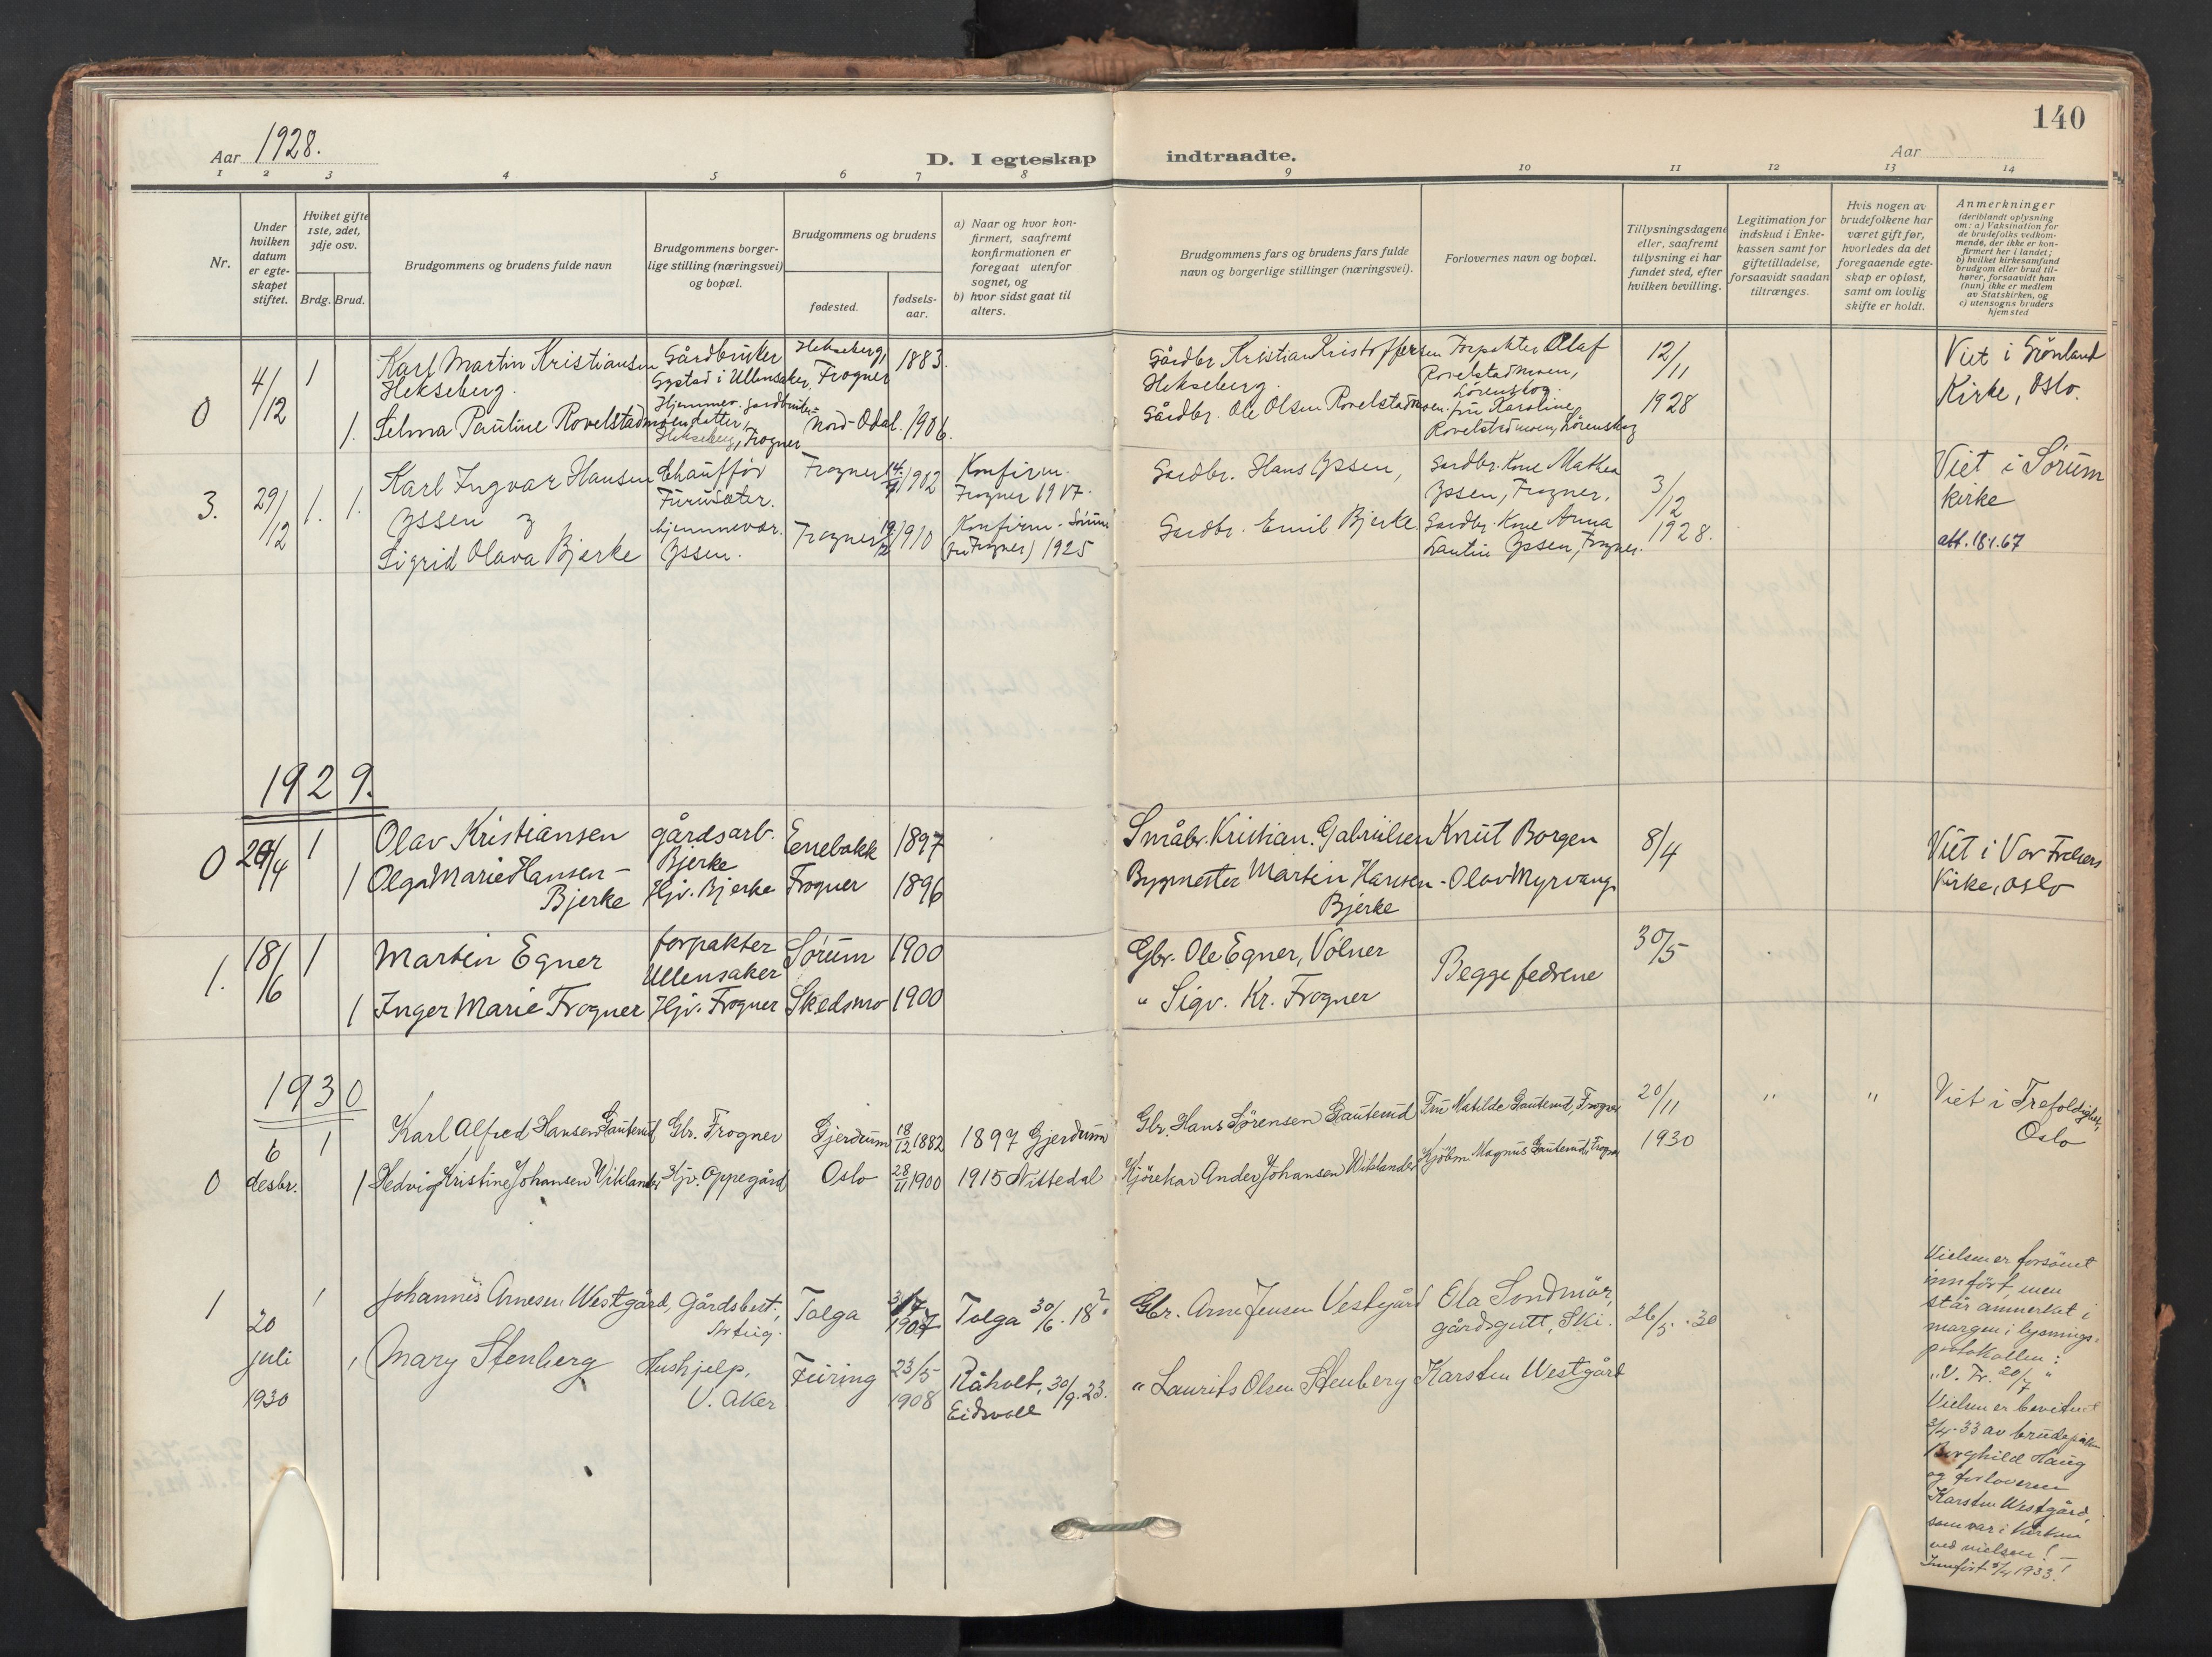 140
Aar 1928.
D. I egteskap indtraadte.
Aar
1 2 3 4 5 6 7 8 9 10 11 12 13 14
Nr.
Under
hvilken
datum
er egte-
skapet
stiftet.
Hviket gifte
1ste, 2det,
3dje osv.
Brdg. Brud.
Brudgommens og brudens fulde navn
Brudgommens borger-
lige stilling (næringsvei)
og bopæl.
Brudgommens og brudens
fødested.
fødsels-
aar.
a) Naar og hvor kon-
firmert, saafremt
konfirmationen er
foregaat utenfor
sognet, og
b) hvor sidst gaat til
alters.
Brudgommens fars og brudens fars fulde
navn og borgerlige stillinger (næringsvei).
Forlovernes navn og bopæl.
Tillysningsdagene
eller, saafremt
tillysning ei har
fundet sted, efter
hvilken bevilling.
Legitimation for
indskud i Enke-
kassen samt for
giftetilladelse,
forsaavidt saadan
tiltrænges.
Hvis nogen av
brudefolkene har
været gift før,
hvorledes da det
foregaaende egte-
skap er opløst,
samt om lovlig
skifte er holdt.
Anmerkninger
(deriblandt oplysning
om: a) Vaksination for
de brudefolks vedkom-
mende, der ikke er kon-
firmert her i landet;
b) hvilket kirkesamfund
brudgom eller brud til-
hører, forsaavidt han
(hun) ikke er medlem
av Statskirken, og
c) utensogns bruders
hjemsted
0
4/12
1
Karl Martin Kristiansen
Hekseberg.
Gårdbruker
Gystad i Ullensaker,
Hekseberg,
Frogner
1883.
Gårdbr. Kristian Kristoffersen
Hekseberg.
Forpakter Olaf
Rovelstadmoen,
Lørenskog.
12/11
1928
Viet i Grönland
Kirke, Oslo.
1.
Selma Pauline Rovelstadmoen
Hjemmev. gardbruker-
datter,
Hekseberg, Frogner
Nord-Odal.
1906.
Gårdbr. Ole Olsen Rovelstadmoen.
fru Karoline
Rovelstadmoen, Lørenskog
3.
29/12
1. 1.
Karl Ingvar Hansen
Yssen &
Sigrid Olava Bjerke
Chauffør
Furuseter.
hjemmevær.
Yssen.
Frogner
1902
Frogner
1910
Konfirm.
Frogner 1917.
Konfirm. Sørum
(fra Frogner) 1925
Gardbr. Hans Yssen,
Gardbr. Emil Bjerke.
Gardbr. Kone Mathea
Yssen, Frogner,
Gardbr. Kone Anna
Lautin Yssen, Frogner.
3/12
1928.
Viet i Sørum
kirke
att. 18.1.67
1929.
0
20/4
1
Olav Kristiansen
gårdsarb.
Bjerke
Enebakk
1897
Småbr. Kristian Gabrielsen
Knut Borgen
8/4
Viet i Vor Frelsers
Kirke, Oslo
1
Olga Marie Hansen-
Bjerke
Hjv. Bjerke
Frogner
1896
Bygmester Martin Hansen-
Bjerke
Olav Myrvang.
1.
18/6
1
Martin Egner
forpakter
Ullensaker
Sørum
1900
Gbr. Ole Egner, Vølner
Begge fedrene
30/5
1
Inger Marie Frogner
Hjv. Frogner
Skedsmo
1900
" Sigv. Kr. Frogner
1930
0
6
desbr.
1
Karl Alfred Hansen Gauterud
Gbr. Frogner
Gjerdrum
18/12 1882
1897 Gjerdrum
Gbr. Hans Sørensen Gauterud
Fru Matilde Gauterud, Frogner
20/11
1930
" "
Viet i Trefoldighet,
Oslo
1
Hedvig Kristine Johansen Viklander
Hjv. Oppegård
Oslo
28/11 1900
1915 Nittedal
Kjørekar Ander Johansen Wiklander
Kjøbm. Magnus Gauterud, Frogner
1
20
juli
1930
1
Johannes Arnesen Westgård,
Gårdsbest.,
Tolga
1907
Tolga 30/6. 18?
Gbr. Arne Jensen Vestgård
Ola Sondmør,
gårdsgutt, Ski.
26/5. 30
1
Mary Stenberg
Hushjelp,
V. Aker.
Feiring
23/5
1908
Råholt, 30/9. 23.
Eidsvoll
" Laurits Olsen Stenberg
Karsten Westgård
Vielsen er forsømt
innført, men
står anmerket i
margen i lysnings-
protokollen:
"V. Fr. 20/7"
Vielsen er bevitnet
3/4-33 av brudepiken
Borghild Haug
og forloveren
Karsten Westgård,
som var i kirken
ved vielsen! -
Innført 5/4 1933!